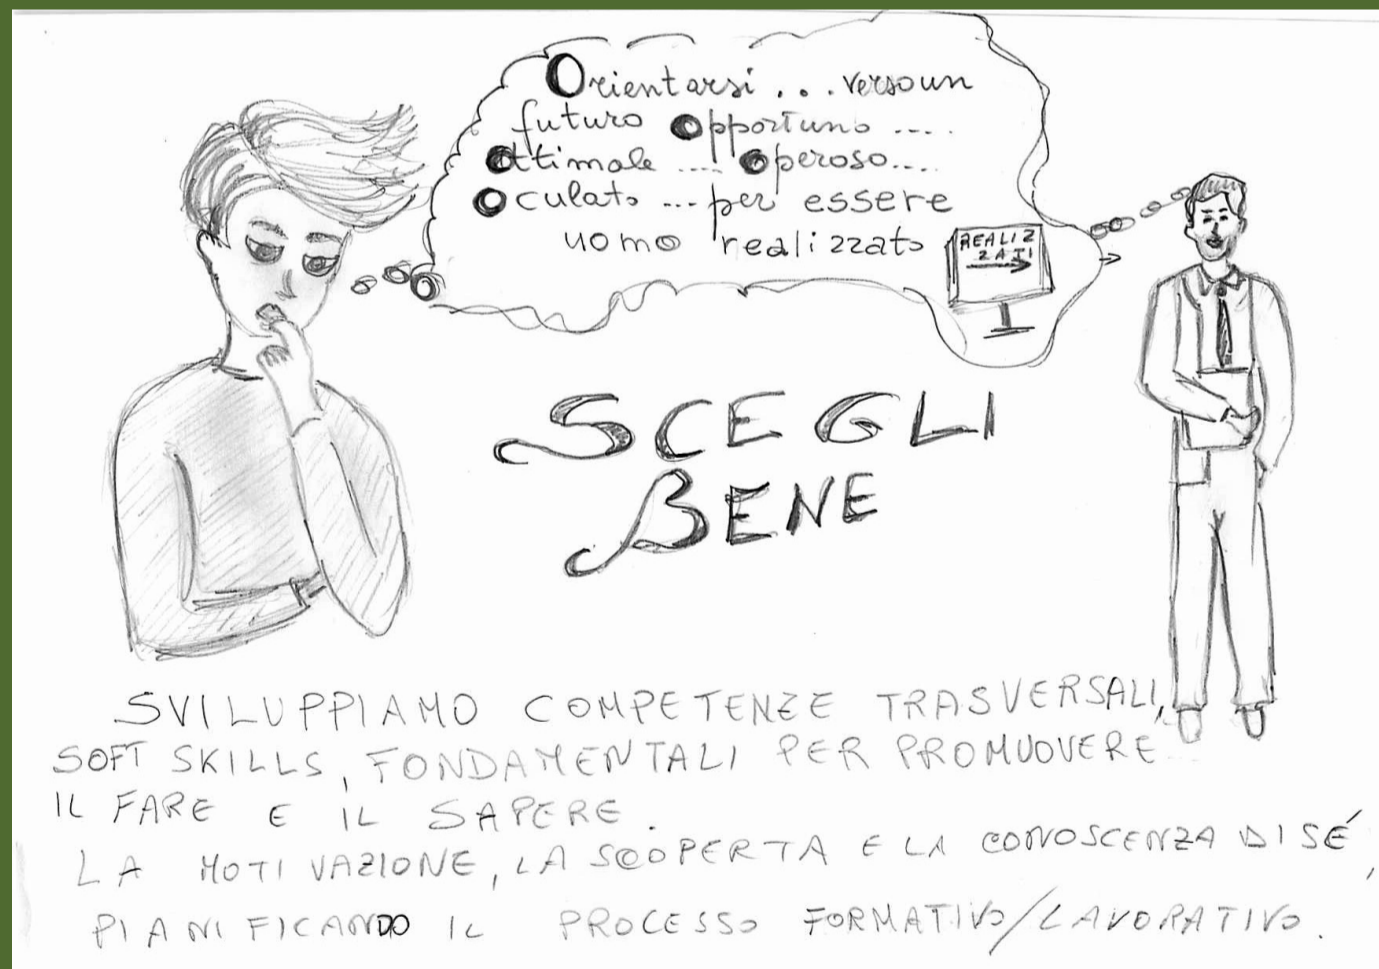 Orientarsi ... verso un
futuro Opportuno ....
Ottimale .... Operoso....
Oculato ... per essere
uomo realizzato
REALIZ
ZATI
SCEGLI
BENE
SVILUPPIAMO COMPETENZE TRASVERSALI,
SOFT SKILLS, FONDAMENTALI PER PROMUOVERE
IL FARE E IL SAPERE.
LA MOTIVAZIONE, LA SCOPERTA E LA CONOSCENZA DI SÉ,
PIANIFICANDO IL PROCESSO FORMATIVO/LAVORATIVO.